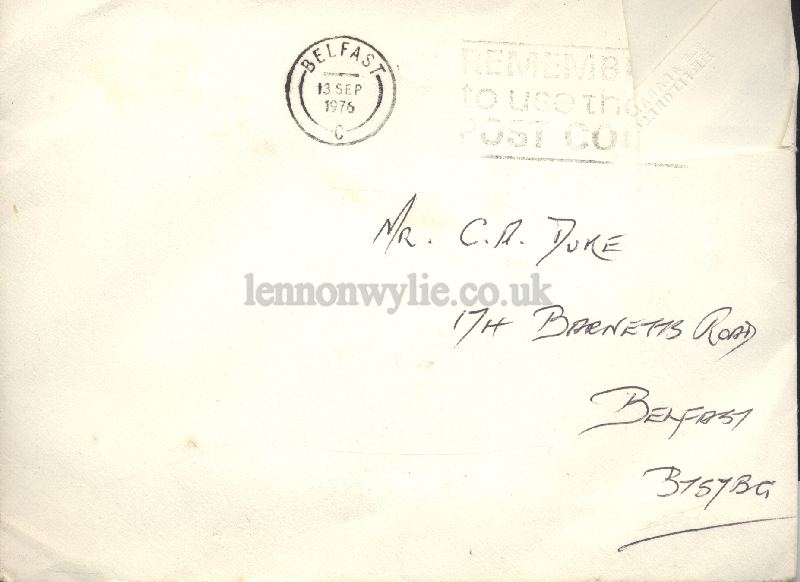 BELFAST
13 SEP
1976
C
REMEMB
to use the
POST CO
Mr. C.A. DUKE
lennonwylie.co.uk
17H BARNETTS ROAD
BELFAST
BT5 7BG